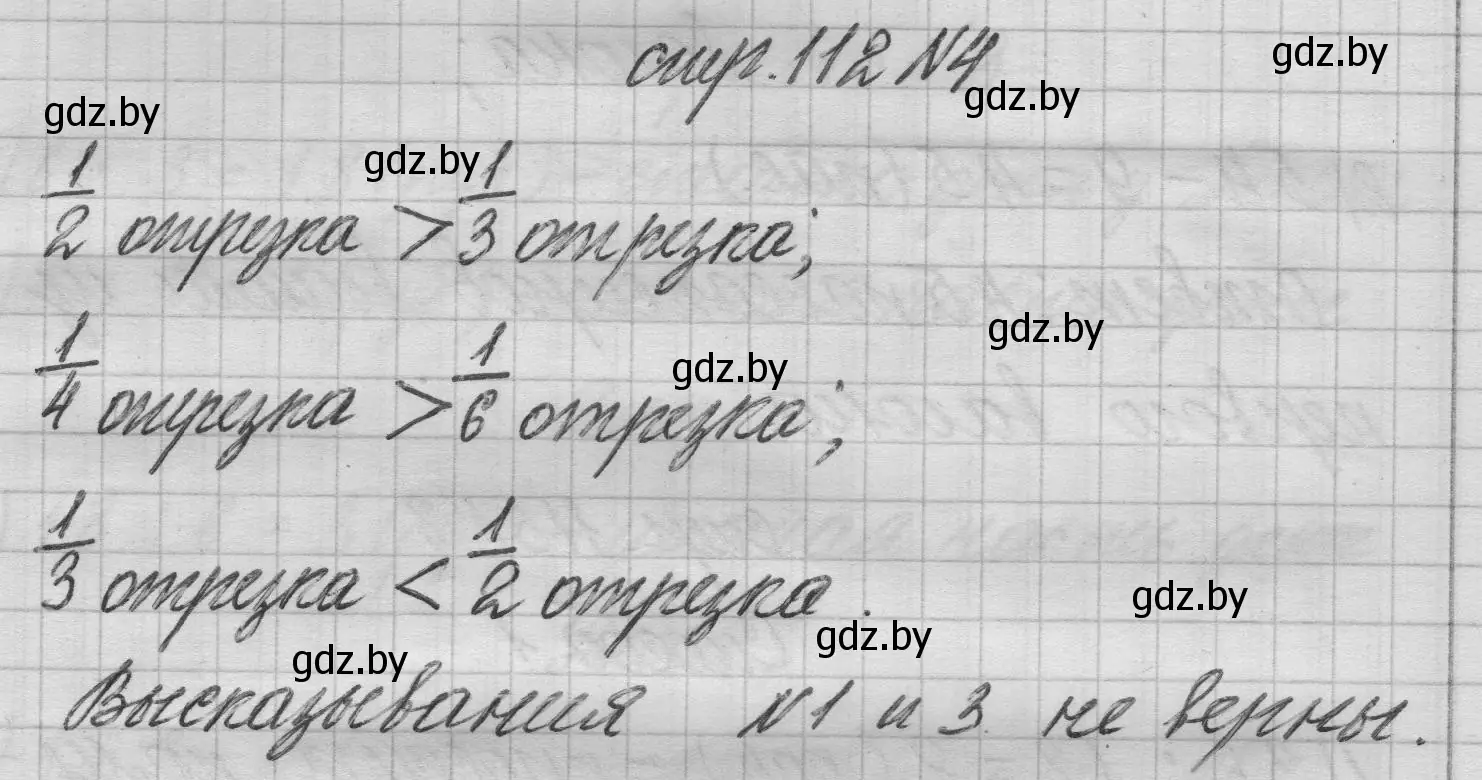 стр. 112 N4
gdz.by
gdz.by
gdz.by
gdz.by
1/2 отрезка > 1/3 отрезка;
gdz.by
gdz.by
1/4 отрезка > 1/6 отрезка;
1/3 отрезка < 1/2 отрезка.
gdz.by
gdz.by
gdz.by
Высказывания N1 и 3 не верны.